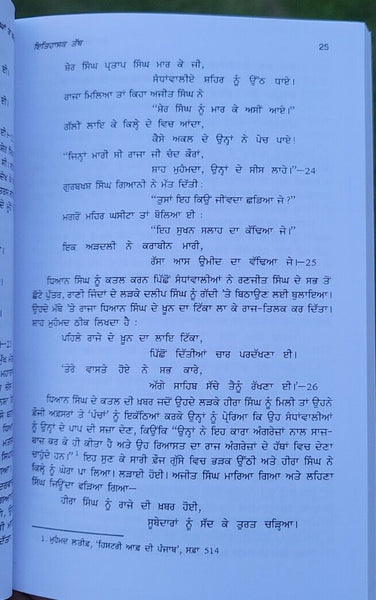 ਇਤਿਹਾਸਕ ਤੱਥ 25
ਸ਼ੇਰ ਸਿੰਘ ਪ੍ਰਤਾਪ ਸਿੰਘ ਮਾਰ ਕੇ ਜੀ,
ਸੰਧਾਂਵਾਲੀਏ ਸ਼ਹਿਰ ਨੂੰ ਉੱਠ ਧਾਏ।
ਰਾਜਾ ਮਿਲਿਆ ਤਾਂ ਕਿਹਾ ਅਜੀਤ ਸਿੰਘ ਨੇ
"ਸ਼ੇਰ ਸਿੰਘ ਨੂੰ ਮਾਰ ਕੇ ਅਸੀਂ ਆਏ।"
ਗੱਲੀਂ ਲਾਇ ਕੇ ਕਿਲ੍ਹੇ ਦੇ ਵਿਚ ਆਂਦਾ,
ਕੈਸੇ ਅਕਲ ਦੇ ਉਨ੍ਹਾਂ ਨੇ ਪੇਚ ਪਾਏ!
"ਜਿਨ੍ਹਾਂ ਮਾਰੀ ਸੀ ਰਾਜਾ ਜੀ ਚੰਦ ਕੌਰਾਂ,
ਸ਼ਾਹ ਮੁਹੰਮਦਾ, ਉਨ੍ਹਾਂ ਦੇ ਸੀਸ ਲਾਹੇ।"—24
ਗੁਰਬਖਸ਼ ਸਿੰਘ ਗਿਆਨੀ ਨੇ ਮੱਤ ਦਿੱਤੀ:
"ਤੁਸਾਂ ਇਹ ਕਿਉਂ ਜੀਂਵਦਾ ਛਡਿਆ ਜੇ ?"
ਮਗਰੋਂ ਮਹਿਰ ਘਸੀਟਾ ਤਾਂ ਬੋਲਿਆ ਈ :
"ਇਹ ਸੁਖਨ ਸਲਾਹ ਦਾ ਕੱਢਿਆ ਜੇ।"
ਇਕ ਅੜਦਲੀ ਨੇ ਕਰਾਬੀਨ ਮਾਰੀ,
ਰੱਸਾ ਆਸ ਉਮੀਦ ਦਾ ਵੱਢਿਆ ਜੇ।—25
ਧਿਆਨ ਸਿੰਘ ਨੂੰ ਕਤਲ ਕਰਨ ਪਿੱਛੋਂ ਸੰਧਾਂਵਾਲੀਆਂ ਨੇ ਰਣਜੀਤ ਸਿੰਘ ਦੇ ਸਭ ਤੋਂ
ਛੋਟੇ ਪੁੱਤਰ, ਰਾਣੀ ਜਿੰਦਾਂ ਦੇ ਲੜਕੇ ਦਲੀਪ ਸਿੰਘ ਨੂੰ ਗੱਦੀ 'ਤੇ ਬਿਠਾਉਣ ਲਈ ਬੁਲਾਇਆ।
ਉਹਦੇ ਮੱਥੇ 'ਤੇ ਰਾਜਾ ਧਿਆਨ ਸਿੰਘ ਦੇ ਖ਼ੂਨ ਦਾ ਟਿੱਕਾ ਲਾ ਕੇ ਰਾਜ-ਤਿਲਕ ਕਰ ਦਿੱਤਾ।
ਸ਼ਾਹ ਮੁਹੰਮਦ ਠੀਕ ਲਿਖਦਾ ਹੈ :
ਪਹਿਲੇ ਰਾਜੇ ਦੇ ਖ਼ੂਨ ਦਾ ਲਾਇ ਟਿੱਕਾ,
ਪਿੱਛੋਂ ਦਿੱਤੀਆਂ ਚਾਰ ਪਰਦੱਖਣਾ ਈ।
'ਤੇਰੇ ਵਾਸਤੇ ਹੋਏ ਨੇ ਸਭ ਕਾਰੇ,
ਅੱਗੇ ਸਾਹਿਬ ਸੱਚੇ ਤੈਨੂੰ ਰੱਖਣਾ ਈ।'—26
ਧਿਆਨ ਸਿੰਘ ਦੇ ਕਤਲ ਦੀ ਖ਼ਬਰ ਜਦੋਂ ਉਹਦੇ ਲੜਕੇ ਹੀਰਾ ਸਿੰਘ ਨੂੰ ਮਿਲੀ ਤਾਂ ਉਹਨੇ
ਫ਼ੌਜੀ ਅਫ਼ਸਰਾਂ ਤੇ 'ਪੰਚਾਂ' ਨੂੰ ਇਕੱਠਿਆਂ ਕਰਕੇ ਉਨ੍ਹਾਂ ਨੂੰ ਪ੍ਰੇਰਿਆ ਕਿ ਉਹ ਸੰਧਾਂਵਾਲੀਆਂ
ਨੂੰ ਉਨ੍ਹਾਂ ਦੇ ਪਾਪ ਦੀ ਸਜ਼ਾ ਦੇਣ, ਕਿਉਂਕਿ "ਉਨ੍ਹਾਂ ਨੇ ਇਹ ਕਾਰਾ ਅੰਗਰੇਜ਼ਾਂ ਨਾਲ ਸਾਜ਼-
ਬਾਜ਼ ਕਰ ਕੇ ਹੀ ਕੀਤਾ ਹੈ ਅਤੇ ਉਹ ਰਿਆਸਤ ਦਾ ਰਾਜ ਅੰਗਰੇਜ਼ਾਂ ਦੇ ਹੱਥਾਂ ਵਿਚ ਦੇਣਾ
ਚਾਹੁੰਦੇ ਹਨ।" ¹ ਇਹ ਸੁਣ ਕੇ ਸਾਰੀ ਫ਼ੌਜ ਗੁੱਸੇ ਵਿਚ ਭੜਕ ਉੱਠੀ ਅਤੇ ਹੀਰਾ ਸਿੰਘ ਨੇ
ਕਿਲ੍ਹੇ ਨੂੰ ਘੇਰਾ ਪਾ ਲਿਆ। ਲੜਾਈ ਹੋਈ। ਅਜੀਤ ਸਿੰਘ ਮਾਰਿਆ ਗਿਆ ਅਤੇ ਲਹਿਣਾ
ਸਿੰਘ ਜਿਊਂਦਾ ਫੜਿਆ ਗਿਆ—
ਹੀਰਾ ਸਿੰਘ ਨੂੰ ਰਾਜੇ ਦੀ ਖ਼ਬਰ ਹੋਈ,
ਸੂਬੇਦਾਰਾਂ ਨੂੰ ਸੱਦ ਕੇ ਤੁਰਤ ਚੜ੍ਹਿਆ।
1. ਮੁਹੰਮਦ ਲਤੀਫ਼, 'ਹਿਸਟਰੀ ਆਫ਼ ਦੀ ਪੰਜਾਬ', ਸਫ਼ਾ 514